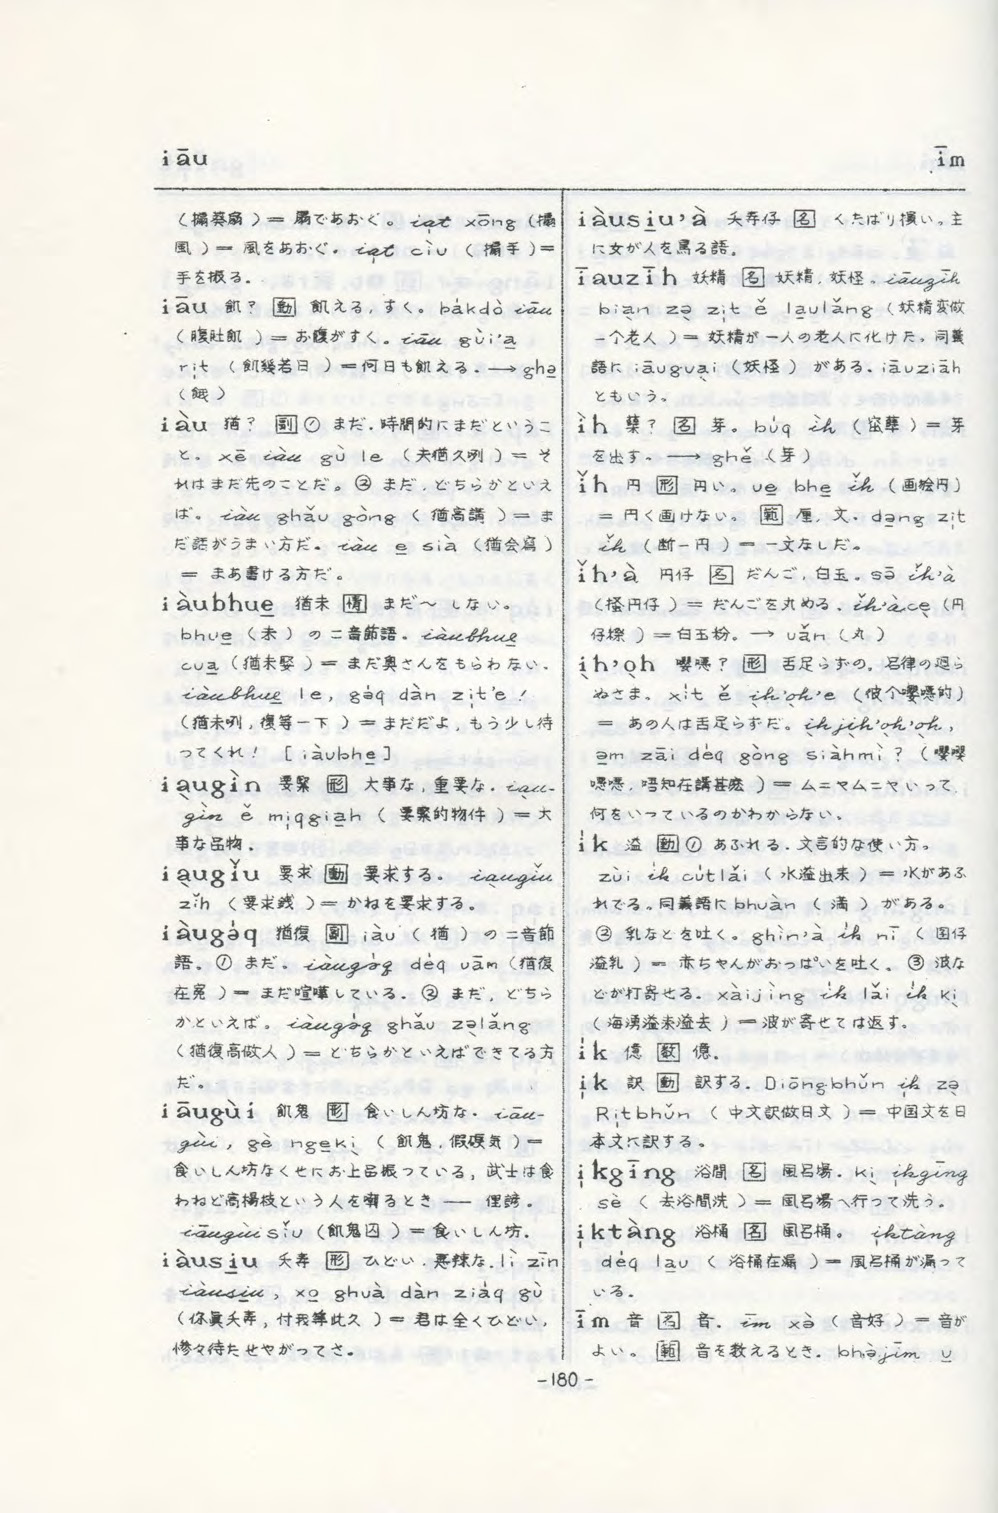 iāu
īm
（搧葵扇）＝扇であおぐ。iat xōng（搧
風）＝風をあおぐ。iat ciu（搧手）＝
手を振る。
iāu 飢？ 動 飢える，すく。bákdò iāu
（腹肚飢）＝お腹がすく。iāu gùi'a
rit（飢幾若日）＝何日も飢える。→ghə
（餓）
iàu 猶？ 副 ① まだ，時間的にまだというこ
と。xē iàu gù le（夫猶久咧）＝そ
れはまだ先のことだ。② まだ，どちらかといえ
ば。iàu ghǎu gòng（猶高講）＝ま
だ話がうまい方だ。iàu e sià（猶会寫）
＝まあ書ける方だ。
iàubhue 猶未 情 まだ～しない。
bhue（未）の二音節語。iàubhue
cua（猶未娶）＝まだ奥さんをもらわない。
iàubhue le, gáq dàn zit'e!
（猶未咧，復等一下）＝まだだよ，もう少し待
ってくれ！［iàubhe］
iaugìn 要緊 形 大事な，重要な。iau-
gìn ě miqgiah（要緊的物件）＝大
事な品物。
iaugǐu 要求 動 要求する。iaugǐu
zǐh（要求銭）＝かねを要求する。
iàugáq 猶復 副 iàu（猶）の二音節
語。① まだ。iàugáq déq uām（猶復
在冤）＝まだ喧嘩している。② まだ，どちら
かといえば。iàugáq ghǎu zəlǎng
（猶復高做人）＝どちらかといえばできてる方
だ。
iāugùi 飢鬼 形 食いしん坊な。iāu-
gùi, gè ngeki（飢鬼，假硬気）＝
食いしん坊なくせにお上品振っている，武士は食
わねど高楊枝という人を嘲るとき――俚諺。
iāugùisǐu（飢鬼囚）＝食いしん坊。
iàusiu 夭寿 形 ひどい，悪辣な。lì zīn
iàusiu, xo ghuà dàn ziáq gù
（你眞夭寿，付我等此久）＝君は全くひどい，
惨々待たせやがってさ。
iàusiu'à 夭寿仔 名 くたばり損い。主
に女が人を罵る語。
iauzīh 妖精 名 妖精，妖怪。iāuzīh
bian zə zit ě laulǎng（妖精変做
一个老人）＝妖精が一人の老人に化けた。同義
語に iāuguai（妖怪）がある。iāuziāh
ともいう。
ìh 蘖？ 名 芽。búq ìh（窋蘖）＝芽
を出す。→ghě（芽）
ǐh 円 形 円い。ue bhe ǐh（画絵円）
＝円く画けない。範 厘，文。dang zit
ǐh（断一円）＝一文なしだ。
ǐh'à 円仔 名 だんご，白玉。sə ǐh'à
＝だんごを丸める。ǐh'àce（円
仔粞）＝白玉粉。→uǎn（丸）
ih'oh 形 舌足らずの，呂律の廻ら
ぬさま。xit ě ih'oh'e
＝あの人は舌足らずだ。ihjih'oh'oh,
əm zāi déq gòng siàhmì?（嚶嚶
，唔知在講甚麽）＝ムニャムニャいって
何をいっているのかわからない。
ík 溢 動 ① あふれる。文言的な使い方。
zùi ík cútlǎi（水溢出来）＝水があふ
れでる。同義語に bhuàn（満）がある。
② 乳などを吐く。ghìn'à ík nī（囝仔
溢乳）＝赤ちゃんがおっぱいを吐く。③ 波な
どが打寄せる。xàijìng ík lǎi ík ki
（海湧溢来溢去）＝波が寄せては返す。
ík 億 数 億。
ik 訳 動 訳する。Diōngbhǔn ik zə
Ritbhǔn（中文訳做日文）＝中国文を日
本文に訳する。
ikgīng 浴間 名 風呂場。ki ikgīng
sè（去浴間洗）＝風呂場へ行って洗う。
iktàng 浴桶 名 風呂桶。iktàng
déq lau（浴桶在漏）＝風呂桶が漏って
いる。
īm 音 名 音。īm xə̀（音好）＝音が
よい。範 音を数えるとき。bhəjīm u
-180-